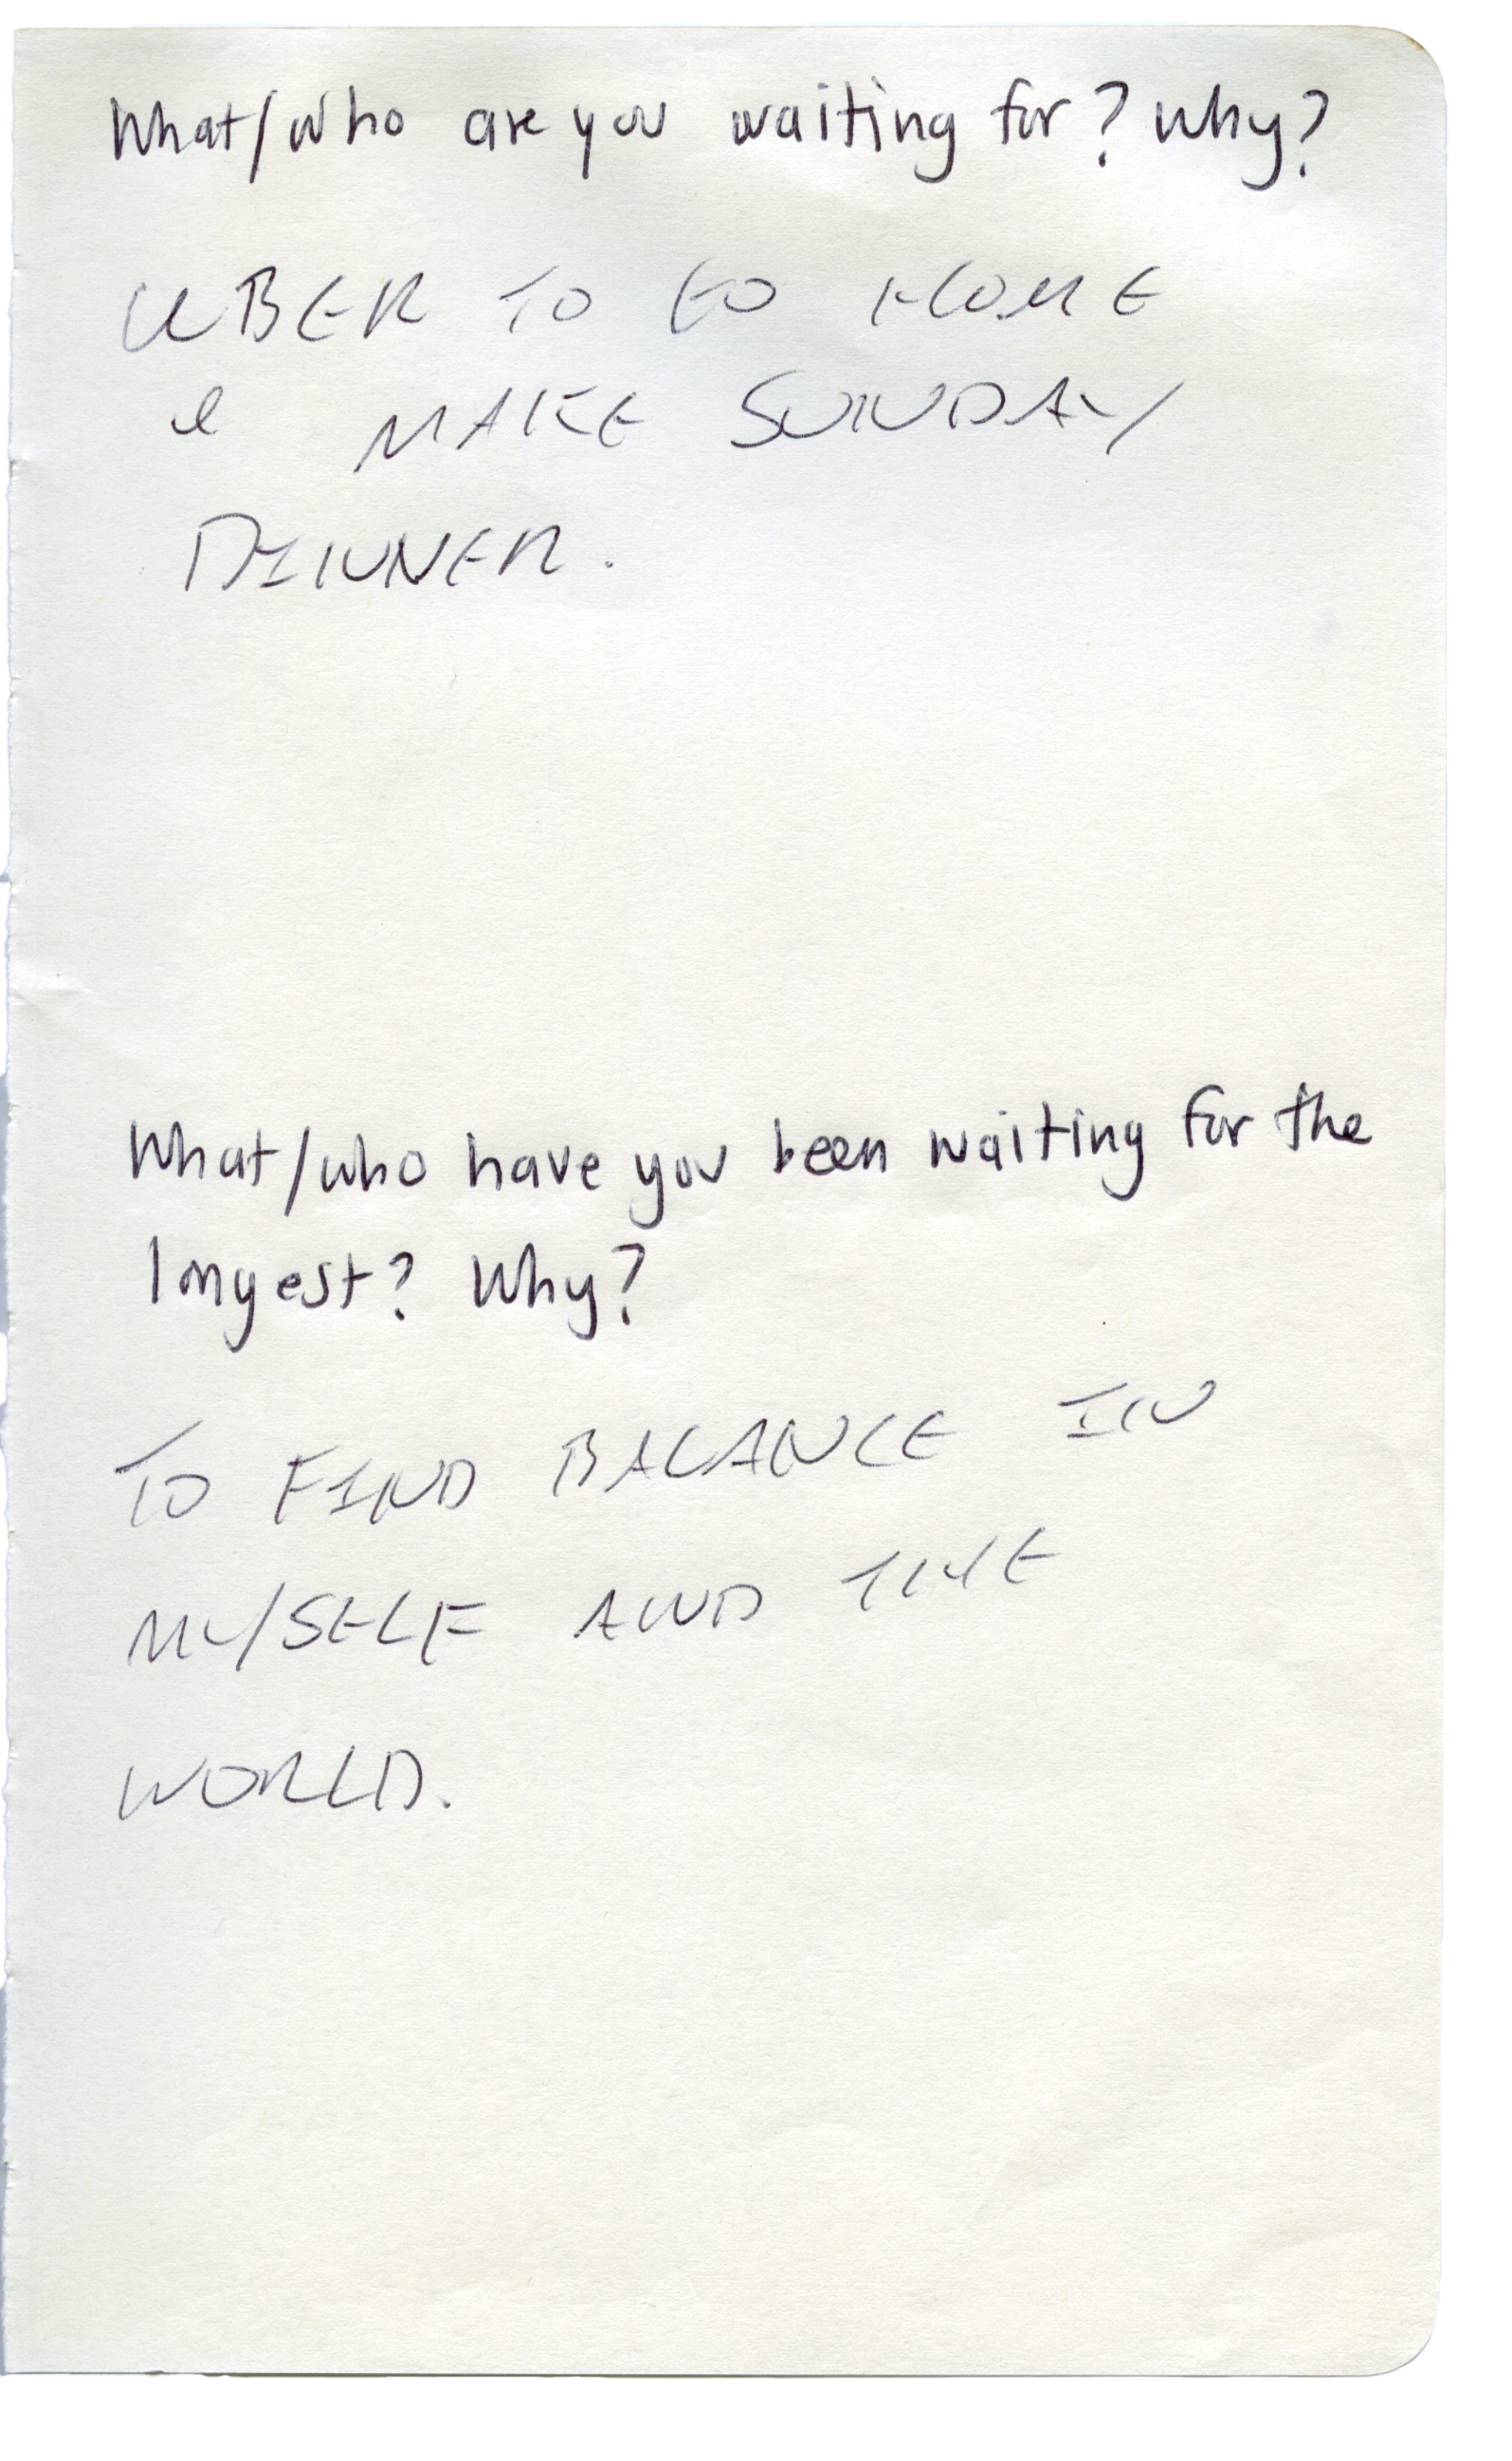 What/who are you waiting for? Why?
UBER TO GO HOME
& MAKE SUNDAY
DINNER.
What/who have you been waiting for the
longest? Why?
TO FIND BALANCE IN
MYSELF AND THE
WORLD.